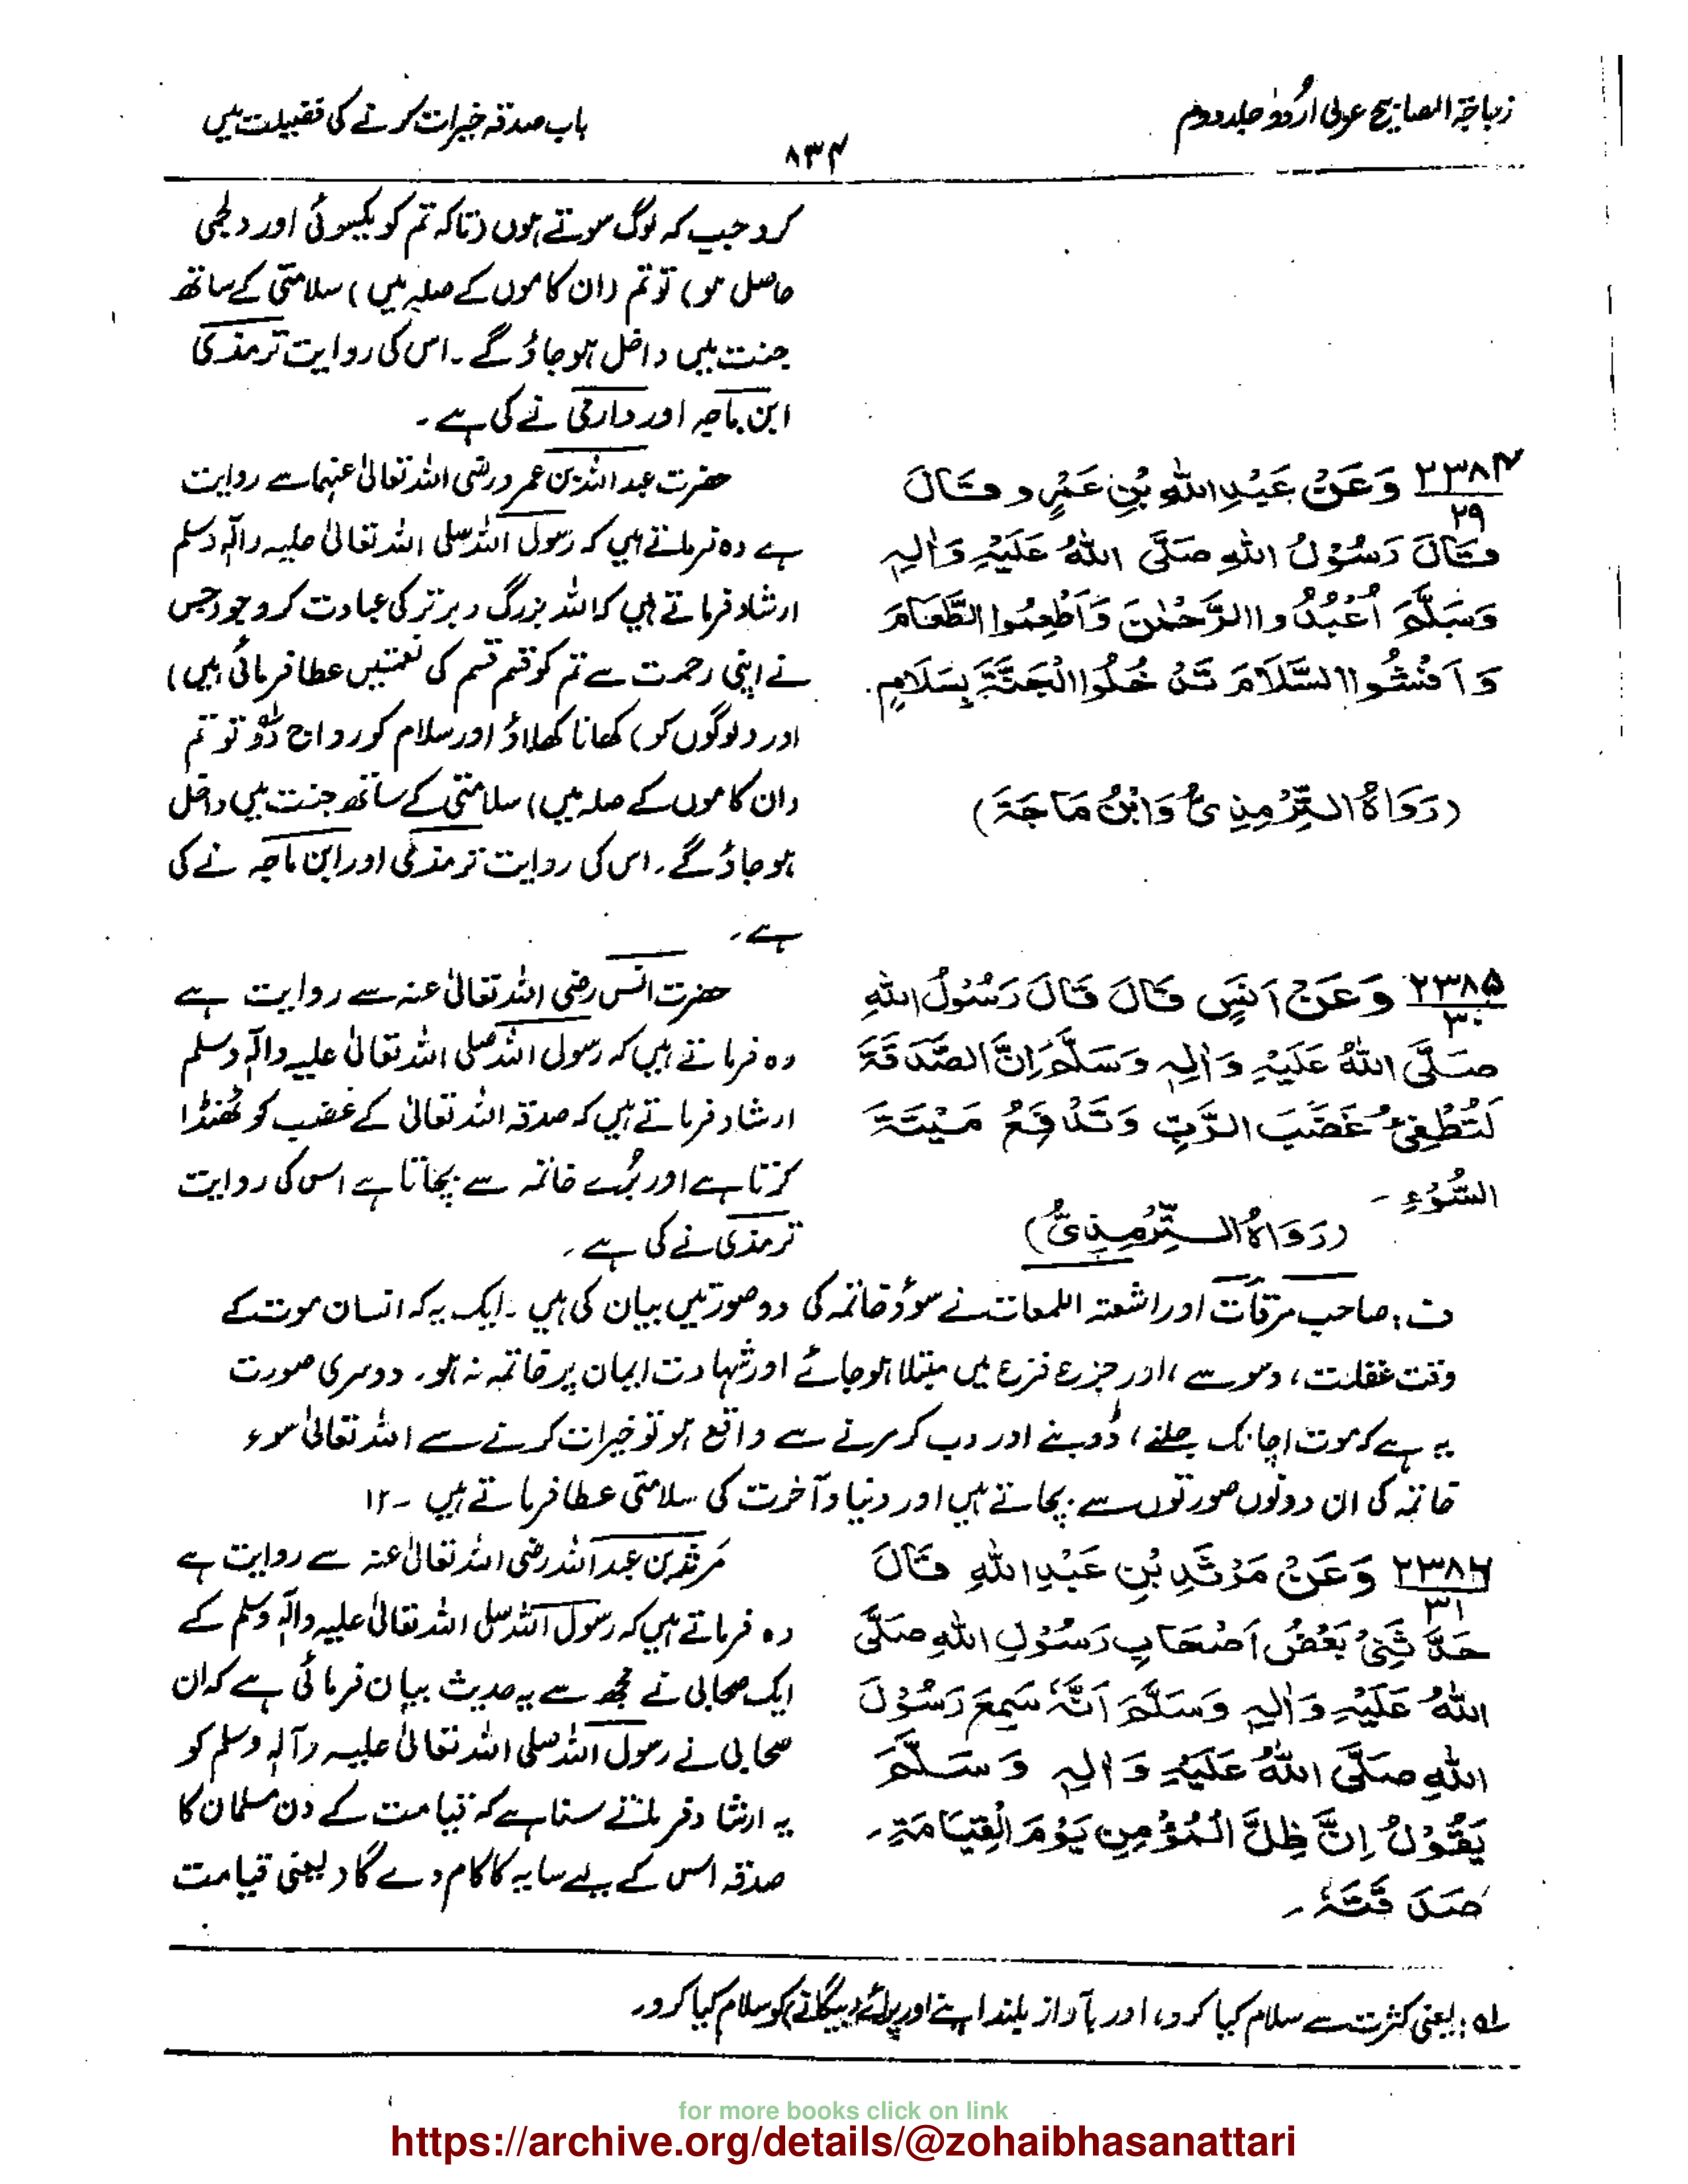 زجاجۃ المصابیح عربی اُردو، جلد دوم
۸۳۴
باب صدقہ خیرات کرنے کی فضیلت میں
کرو جب کہ لوگ سوتے ہوں (تاکہ تم کو یکسوئی اور دلجمعی
حاصل ہو) تو تم (ان کاموں کے صلہ میں) سلامتی کے ساتھ
جنت میں داخل ہوجاؤ گے۔ اس کی روایت ترمذی
ابن ماجہ اور دارمی نے کی ہے۔
۲۳۸۴
۲۹
وَعَنْ عَبْدِ اللهِ بْنِ عَمْرٍو قَالَ
قَالَ رَسُوْلُ اللهِ صَلَّى اللهُ عَلَيْهِ وَاٰلِهٖ
وَسَلَّمَ اُعْبُدُوا الرَّحْمٰنَ وَاَطْعِمُوا الطَّعَامَ
وَاَفْشُوا السَّلَامَ تَدْخُلُوا الْجَنَّةَ بِسَلَامٍ.
(رَوَاهُ التِّرْمِذِيُّ وَابْنُ مَاجَةَ)
حضرت عبد اللہ بن عمرو رضی اللہ تعالیٰ عنہما سے روایت
ہے وہ فرماتے ہیں کہ رسول اللہ صلی اللہ تعالیٰ علیہ وآلہٖ وسلم
ارشاد فرماتے ہیں کہ اللہ بزرگ و برتر کی عبادت کرو جو (جس
نے اپنی رحمت سے تم کو قسم قسم کی نعمتیں عطا فرمائی ہیں)
اور (لوگوں کو) کھانا کھلاؤ اور سلام کو رواج دوؔ تو تم
(ان کاموں کے صلہ میں) سلامتی کے ساتھ جنت میں داخل
ہوجاؤ گے۔ اس کی روایت ترمذی اور ابن ماجہ نے کی
ہے۔
۲۳۸۵
۳۰
وَعَنْ اَنَسٍ قَالَ قَالَ رَسُوْلُ اللهِ
صَلَّى اللهُ عَلَيْهِ وَاٰلِهٖ وَسَلَّمَ اِنَّ الصَّدَقَةَ
لَتُطْفِئُ غَضَبَ الرَّبِّ وَتَدْفَعُ مَيْتَةَ
السُّوْءِ۔
(رَوَاهُ التِّرْمِذِيُّ)
حضرت انس رضی اللہ تعالیٰ عنہ سے روایت ہے
وہ فرماتے ہیں کہ رسول اللہ صلی اللہ تعالیٰ علیہ وآلہٖ وسلم
ارشاد فرماتے ہیں کہ صدقہ اللہ تعالیٰ کے غضب کو ٹھنڈا
کرتا ہے اور بُرے خاتمہ سے بچاتا ہے اس کی روایت
ترمذی نے کی ہے۔
ف: صاحب مرقات اور اشعتہ اللمعات نے سوءِ خاتمہ کی دو صورتیں بیان کی ہیں۔ ایک یہ کہ انسان موت کے
وقت غفلت، وسوسے، اور جزع فزع میں مبتلا ہوجائے اور شہادت ایمان پر خاتمہ نہ ہو۔ دوسری صورت
یہ ہے کہ موت اچانک جلنے، ڈوبنے اور دب کر مرنے سے واقع ہو تو خیرات کرنے سے اللہ تعالیٰ سوء
خاتمہ کی ان دونوں صورتوں سے بچاتے ہیں اور دنیا و آخرت کی سلامتی عطا فرماتے ہیں۔ ۱۲
۲۳۸۶
۳۱
وَعَنْ مَرْثَدِ بْنِ عَبْدِ اللهِ قَالَ
حَدَّثَنِيْ بَعْضُ اَصْحَابِ رَسُوْلِ اللهِ صَلَّى
اللهُ عَلَيْهِ وَاٰلِهٖ وَسَلَّمَ اَنَّهٗ سَمِعَ رَسُوْلَ
اللهِ صَلَّى اللهُ عَلَيْهِ وَاٰلِهٖ وَسَلَّمَ
يَقُوْلُ اِنَّ ظِلَّ الْمُؤْمِنِ يَوْمَ الْقِيَامَةِ۔
صَدَقَتُهٗ۔
مَرثد بن عبد اللہ رضی اللہ تعالیٰ عنہ سے روایت ہے
وہ فرماتے ہیں کہ رسول اللہ صلی اللہ تعالیٰ علیہ وآلہٖ وسلم کے
ایک صحابی نے مجھ سے یہ حدیث بیان فرمائی ہے کہ ان
صحابی نے رسول اللہ صلی اللہ تعالیٰ علیہ وآلہٖ وسلم کو
یہ ارشاد فرماتے سنا ہے کہ قیامت کے دن مسلمان کا
صدقہ اس کے لیے سایہ کا کام دے گا (یعنی قیامت
لہ: یعنی کثرت سے سلام کیا کرو، اور بآواز بلند اپنے اور پرائے (بیگانے) کو سلام کیا کرو۔
for more books click on link
https://archive.org/details/@zohaibhasanattari